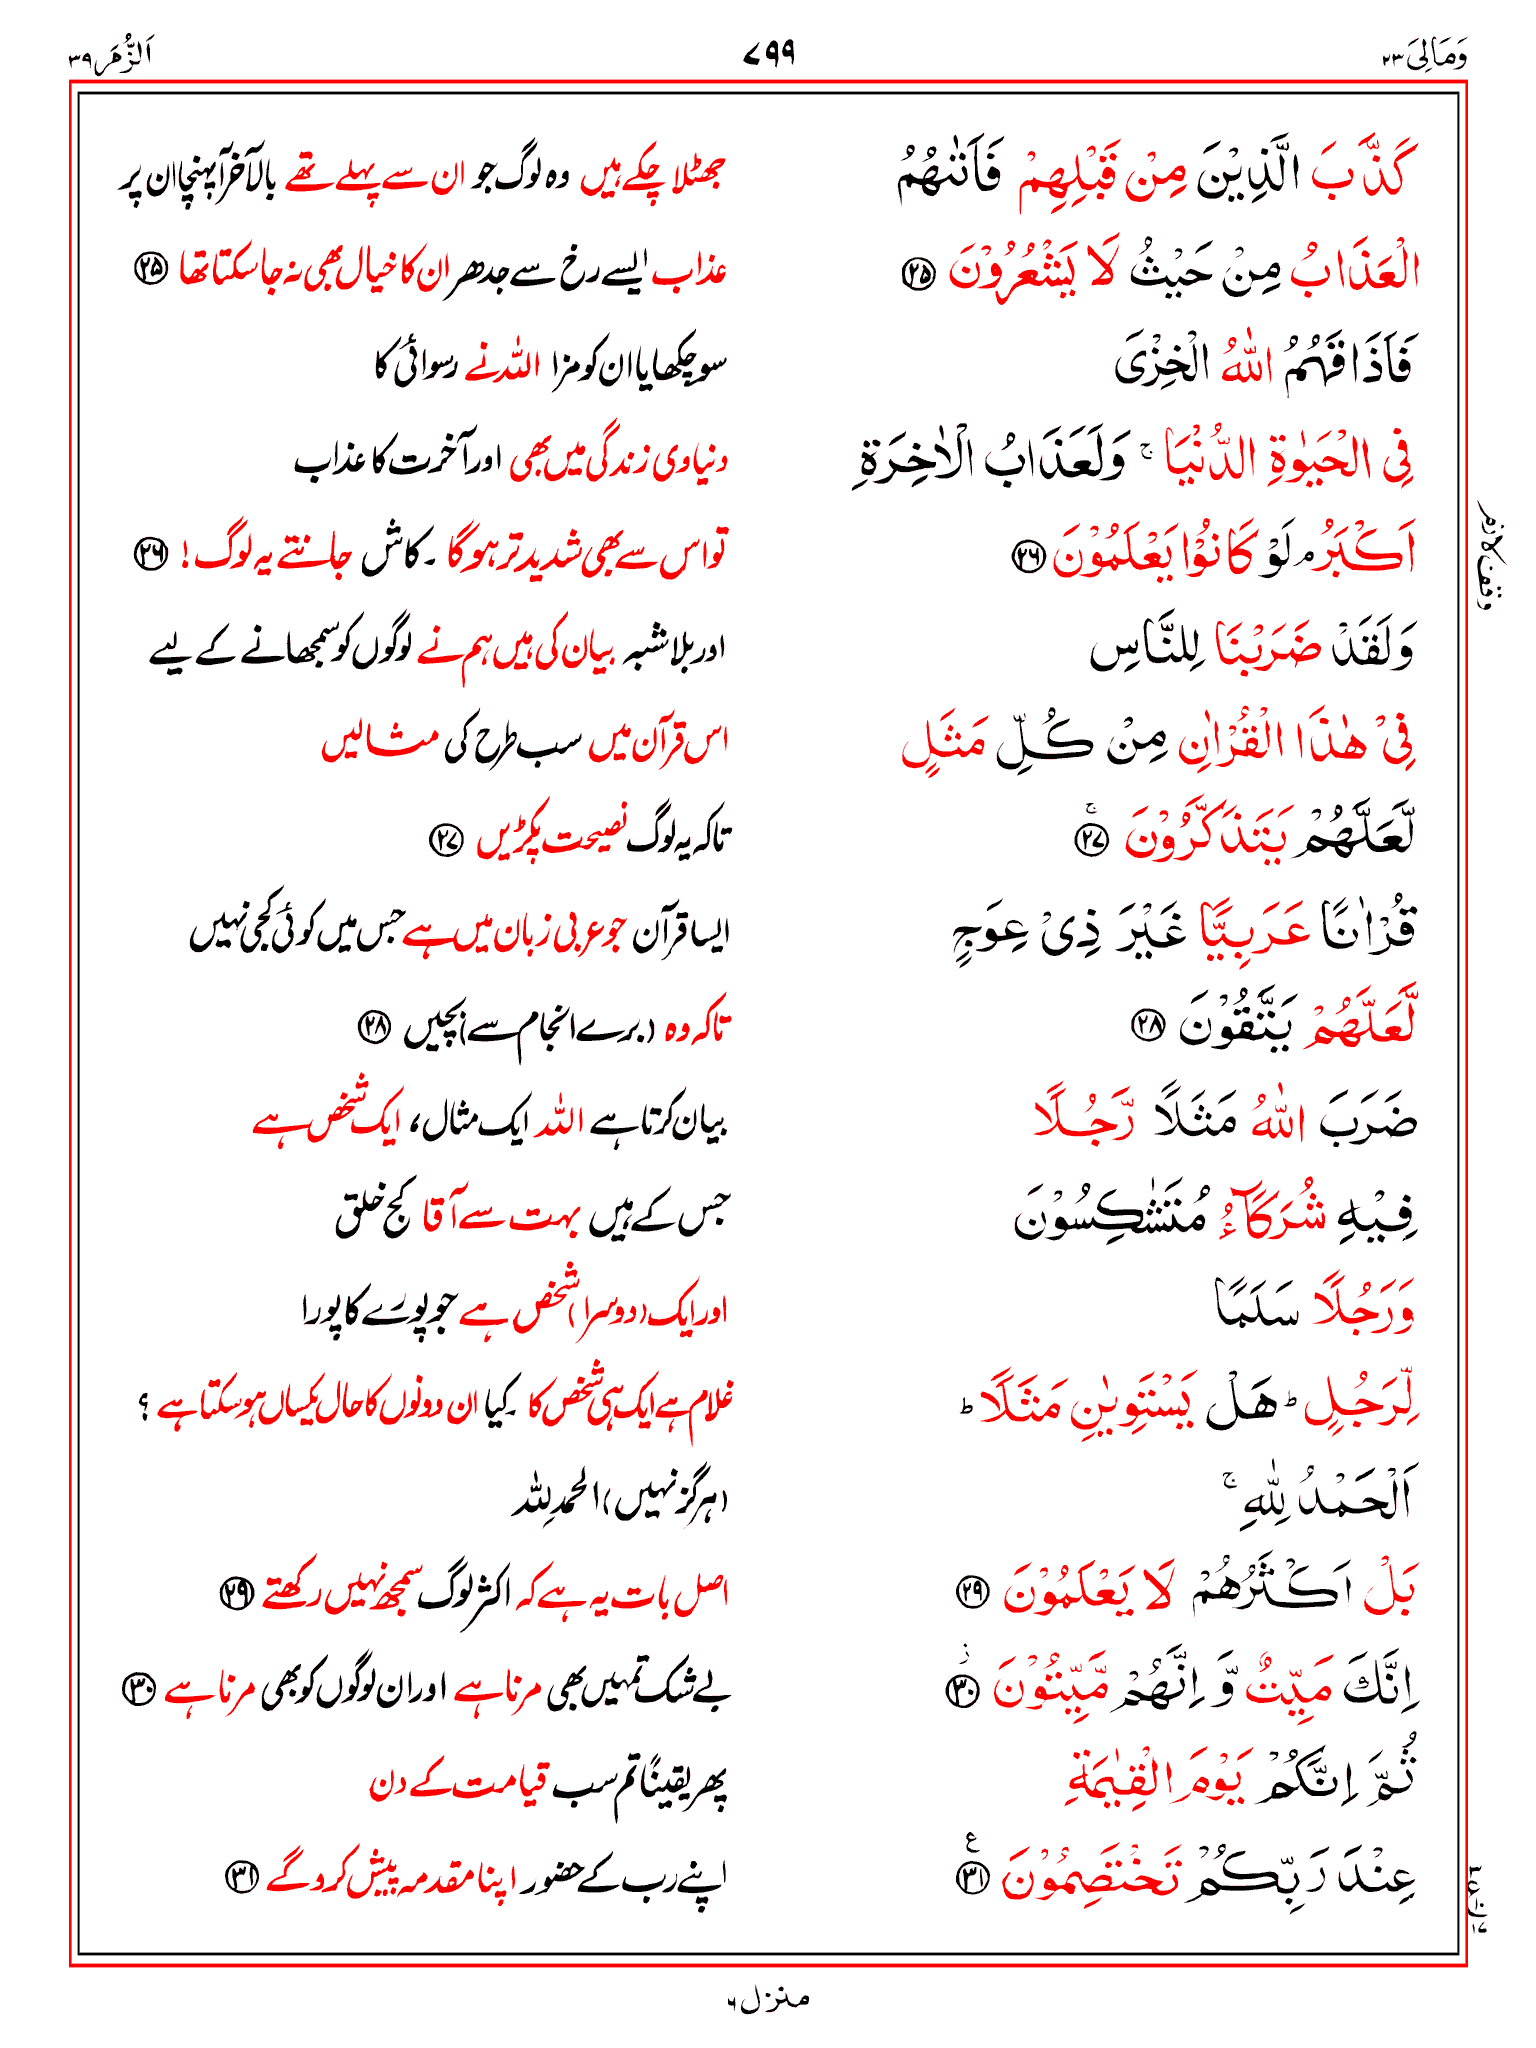 وَمَالِیَ ۲۳ ۷۹۹ اَلزُّمَر ۳۹
كَذَّبَ الَّذِیْنَ مِنْ قَبْلِهِمْ فَاَتٰىهُمُ جھٹلا چکے ہیں وہ لوگ جو ان سے پہلے تھے بالآخر آپہنچا ان پر
الْعَذَابُ مِنْ حَیْثُ لَا یَشْعُرُوْنَ ۲۵ عذاب ایسے رخ سے جدھر ان کا خیال بھی نہ جا سکتا تھا ۲۵
فَاَذَاقَهُمُ اللّٰهُ الْخِزْیَ سو چکھایا ان کو مزا اللہ نے رسوائی کا
فِی الْحَیٰوةِ الدُّنْیَا ۚ وَلَعَذَابُ الْاٰخِرَةِ دنیاوی زندگی میں بھی اور آخرت کا عذاب
اَكْبَرُ ۘ لَوْ كَانُوْا یَعْلَمُوْنَ ۲۶ تو اس سے بھی شدید تر ہو گا ۔ کاش جانتے یہ لوگ ! ۲۶
وقف لازم
وَلَقَدْ ضَرَبْنَا لِلنَّاسِ اور بلاشبہ بیان کی ہیں ہم نے لوگوں کو سمجھانے کے لیے
فِیْ هٰذَا الْقُرْاٰنِ مِنْ كُلِّ مَثَلٍ اس قرآن میں سب طرح کی مثالیں
لَّعَلَّهُمْ یَتَذَكَّرُوْنَ ۚ ۲۷ تاکہ یہ لوگ نصیحت پکڑیں ۲۷
قُرْاٰنًا عَرَبِیًّا غَیْرَ ذِیْ عِوَجٍ ایسا قرآن جو عربی زبان میں ہے جس میں کوئی کجی نہیں
لَّعَلَّهُمْ یَتَّقُوْنَ ۲۸ تاکہ وہ (برے انجام سے) بچیں ۲۸
ضَرَبَ اللّٰهُ مَثَلًا رَّجُلًا بیان کرتا ہے اللہ ایک مثال، ایک شخص ہے
فِیْهِ شُرَكَآءُ مُتَشٰكِسُوْنَ جس کے ہیں بہت سے آقا کج خلق
وَرَجُلًا سَلَمًا اور ایک (دوسرا) شخص ہے جو پورے کا پورا
لِّرَجُلٍ ؕ هَلْ یَسْتَوِیٰنِ مَثَلًا ؕ غلام ہے ایک ہی شخص کا ۔ کیا ان دونوں کا حال یکساں ہو سکتا ہے ؟
اَلْحَمْدُ لِلّٰهِ ۚ (ہرگز نہیں) الحمد للہ
بَلْ اَكْثَرُهُمْ لَا یَعْلَمُوْنَ ۲۹ اصل بات یہ ہے کہ اکثر لوگ سمجھ نہیں رکھتے ۲۹
اِنَّكَ مَیِّتٌ وَّ اِنَّهُمْ مَّیِّتُوْنَ ۳۰ بے شک تمہیں بھی مرنا ہے اور ان لوگوں کو بھی مرنا ہے ۳۰
ثُمَّ اِنَّكُمْ یَوْمَ الْقِیٰمَةِ پھر یقینًا تم سب قیامت کے دن
عِنْدَ رَبِّكُمْ تَخْتَصِمُوْنَ ۳۱ اپنے رب کے حضور اپنا مقدمہ پیش کرو گے ۳۱
منزل ۶